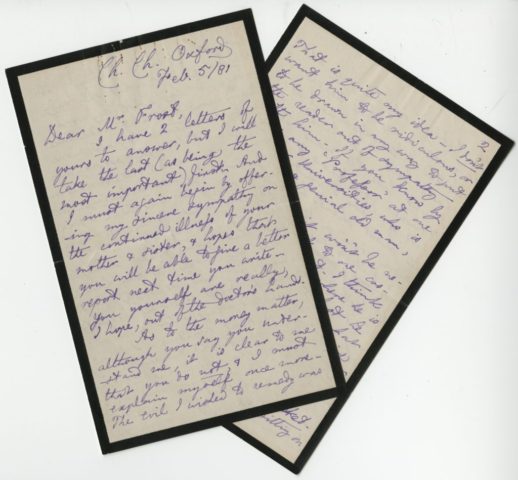 Ch. Ch. Oxford
Feb. 5/81
Dear Mr. Frost,
I have 2 letters of
yours to answer, but I will
take the last (as being the
most important) first. And
I must again begin by offer-
ing my sincere sympathy on
the continued illness of your
mother & sister, & hopes that
you will be able to give a better
report next time you write.
You yourself are really,
I hope, out of the doctor's hands.
As to the money matter,
although you say you under-
stand me, it is clear to me
that you do not, & I must
explain myself once more.
The evil I wished to remedy was
2
That is quite my idea - I don't
want him to be ridiculous, or
to be drawn in any way to put
the reader out of sympathy
him. I
any "Professor" at
Universities who is
a genial old man,
it won't be
I think
he is